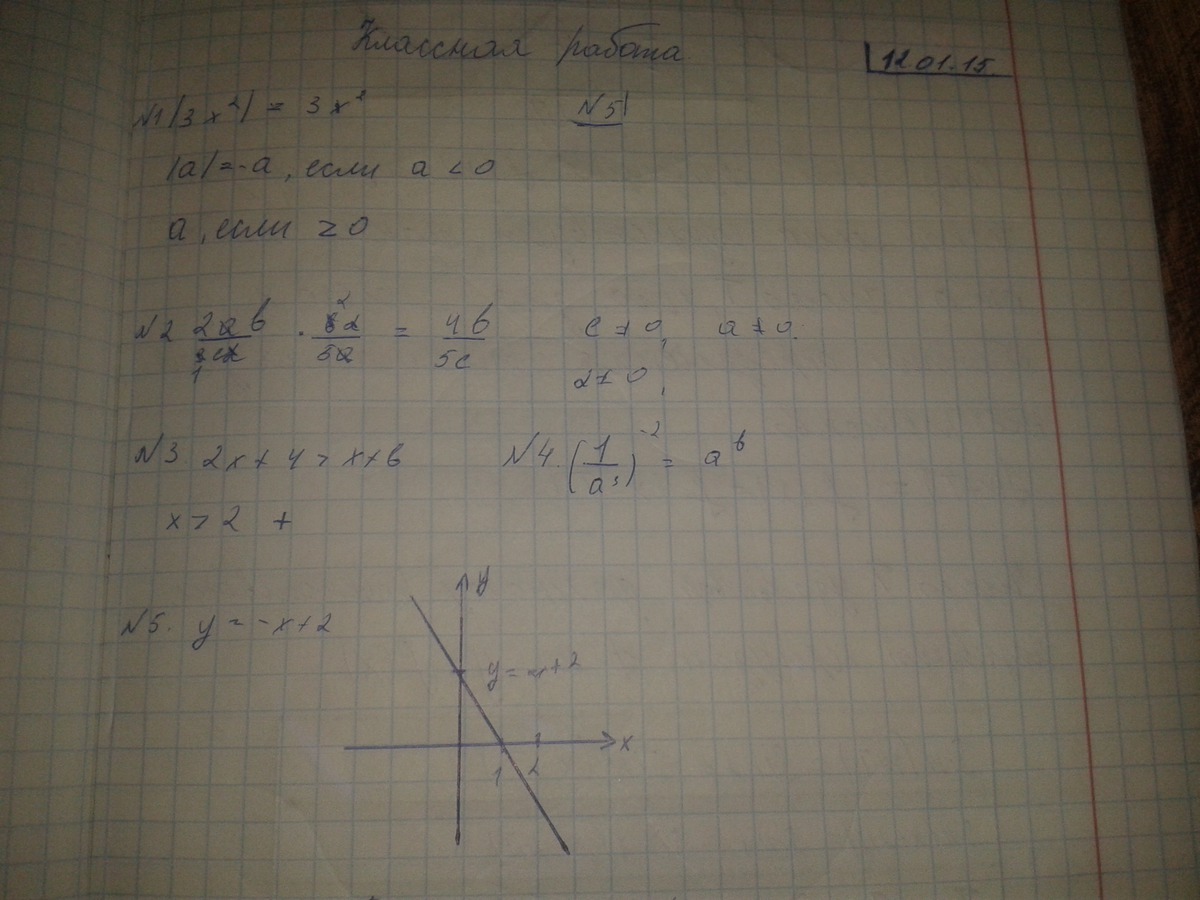 Классная работа
12.01.15
№1 |3x²| = 3x²
№5
|a| = -a, если a < 0
a, если ≥ 0
№2 2ab/3cx · 6x/5a = 4b/5c c ≠ 0, a ≠ 0.
2
1
x ≠ 0,
№3. 2x + 4 > x + 6
№4. (1/a³)⁻² = a⁶
x > 2 +
№5. y = -x+2
y
y = -x+2
x
1 2